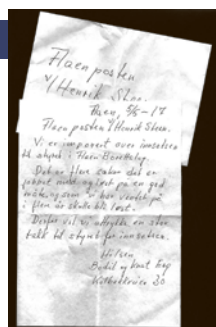 Flaen posten
v/ Henrik Steen.
Moen, 5/5-17
Flaen posten v/ Henrik Steen.
Vi er imponert over innsatsen
til styret i Flaen Borettslag.
Det er flere saker det er
jobbet med, og løst på en god
måte, og som vi har ventet på
i flere år skulle bli løst.
Derfor vil vi uttrykke en stor
takk til styret for innsatsen.
Hilsen
Bodil og Knut
30